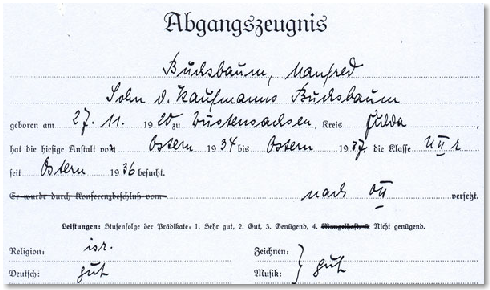 Abgangszeugnis
Buchsbaum, Manfred
Sohn d. Kaufmanns Buchsbaum
geboren am 27. 11. 1920 zu Wüstensachsen, Kreis Fulda,
hat die hiesige Anstalt von Ostern 1934 bis Ostern 1937, die Klasse U II r
seit Ostern 1936 besucht.
Er wurde durch Konferenzbeschluß vom nach O II versetzt.
Leistungen: Stufenfolge der Prädikate: 1. Sehr gut. 2. Gut. 3. Genügend. 4. Mangelhaft. 5. Nicht genügend.
Religion: isr. Zeichnen:
Deutsch: gut Musik: } gut